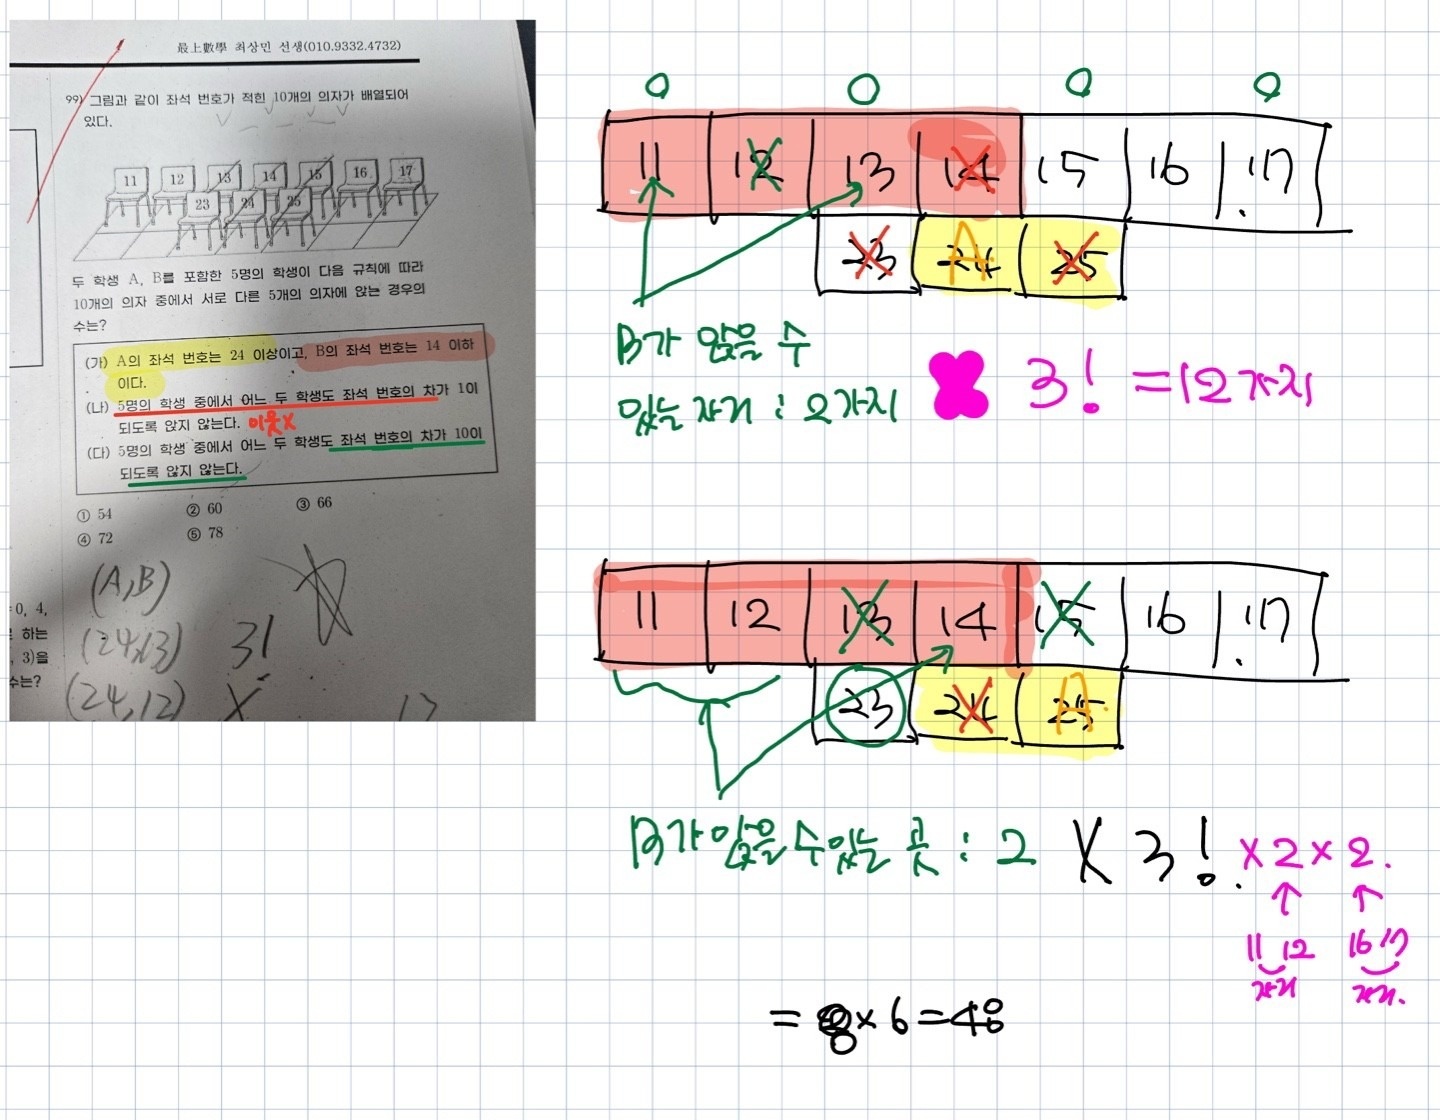 最上數學 최상민 선생(010.9332.4732)
99) 그림과 같이 좌석 번호가 적힌 10개의 의자가 배열되어
있다.
11 12 13 14 15 16 17
23 24 25
두 학생 A, B를 포함한 5명의 학생이 다음 규칙에 따라
10개의 의자 중에서 서로 다른 5개의 의자에 앉는 경우의
수는?
(가) A의 좌석 번호는 24 이상이고, B의 좌석 번호는 14 이하
이다.
(나) 5명의 학생 중에서 어느 두 학생도 좌석 번호의 차가 1이
되도록 앉지 않는다. 이웃X
(다) 5명의 학생 중에서 어느 두 학생도 좌석 번호의 차가 10이
되도록 앉지 않는다.
① 54 ② 60 ③ 66
④ 72 ⑤ 78
(A,B)
(24,13) 3!
(24,12) X
0, 4,
하는
, 3)을
수는?
11 12 13 14 15 16 17
23 24 25
A
B가 앉을 수
있는 자리 : 2가지 × 3! = 12가지
11 12 13 14 15 16 17
23 24 25
A
B가 앉을 수 있는 곳 : 2 × 3! × 2 × 2.
11 12 16 17
자리 자리.
= 8 × 6 = 48